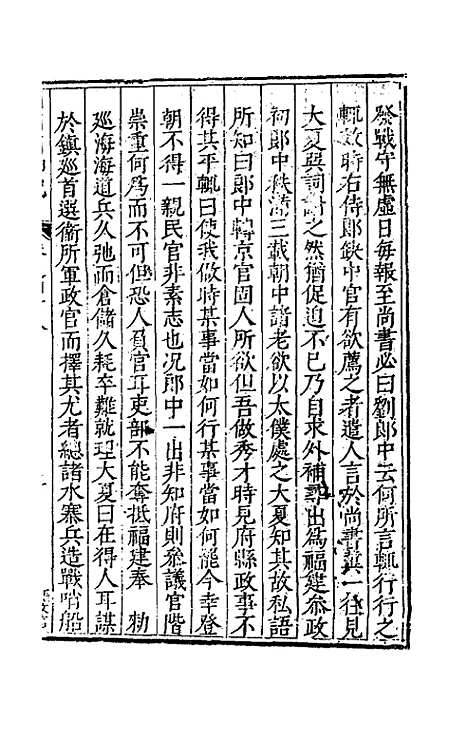 發戰守無虛日毎報至尚書必曰劉郎中云何所言輒行行之
輒效時右侍郎缺中官有欲薦之者遣人言於尚書冀一徃見
大夏與詞謝之然猶促迫不已乃自求外補尋出為福建叅政
初郎中秩滿三載朝中諸老欲以太僕處之大夏知其故私語
所知曰郎中轉京官固人所欲但吾做秀才時見府縣政事不
得其平輒曰使我做時某事當如何行某事當如何罷今幸登
朝不得一親民官非素志也况郎中一出非知府則叅議官階
崇重何為而不可但恐人負官耳吏部不能奪抵福建奉 勑
廵海海道兵久弛而倉儲久耗卒難就理大夏曰在得人耳謀
於鎮廵首選衞所軍政官而擇其尤者總諸水寨兵造戰哨船